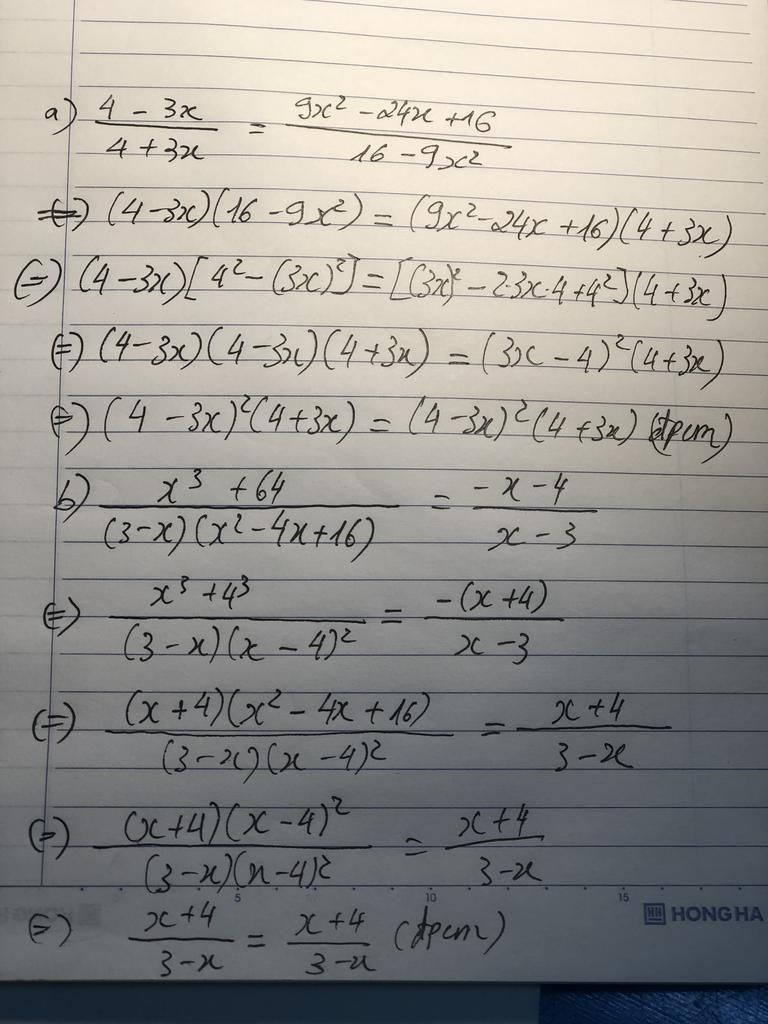 a) (4 - 3x)/(4 + 3x) = (9x² - 24x + 16)/(16 - 9x²)
(=) (4 - 3x)(16 - 9x²) = (9x² - 24x + 16)(4 + 3x)
(=) (4 - 3x)[4² - (3x)²] = [(3x)² - 2·3x·4 + 4²](4 + 3x)
(=) (4 - 3x)(4 - 3x)(4 + 3x) = (3x - 4)²(4 + 3x)
(=) (4 - 3x)²(4 + 3x) = (4 - 3x)²(4 + 3x) (đpcm)
b) (x³ + 64)/((3 - x)(x² - 4x + 16)) = (-x - 4)/(x - 3)
(=) (x³ + 4³)/((3 - x)(x - 4)²) = (-(x + 4))/(x - 3)
(=) ((x + 4)(x² - 4x + 16))/((3 - x)(x - 4)²) = (x + 4)/(3 - x)
(=) ((x + 4)(x - 4)²)/((3 - x)(x - 4)²) = (x + 4)/(3 - x)
5 10 15
HONG HA
(=) (x + 4)/(3 - x) = (x + 4)/(3 - x) (đpcm)